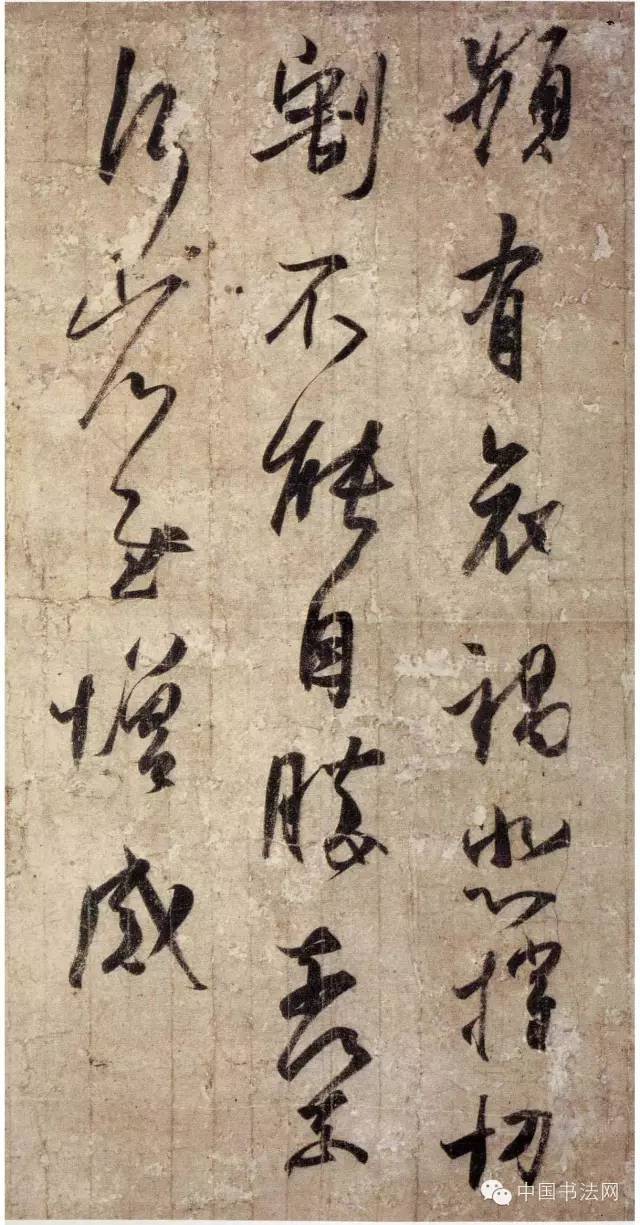 頻有哀禍悲摧切
割不能自勝奈何奈
何省慰增感
中国书法网